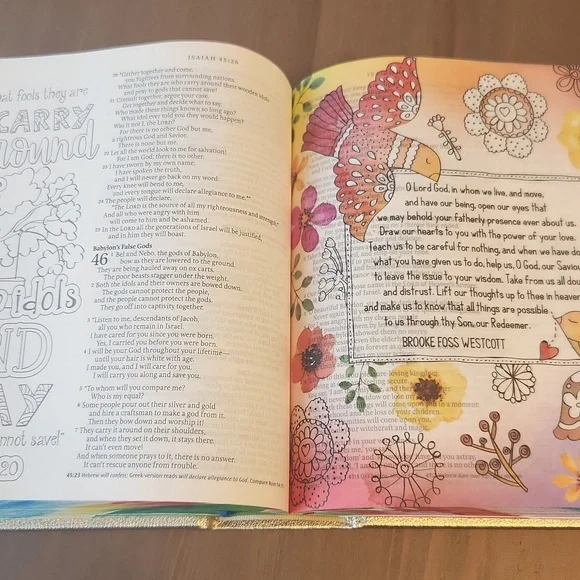 ISAIAH 45:20
hat fools they are
CARRY
around
idols
AND
AY
cannot save!"
20
20 "Gather together and come,
you fugitives from surrounding nations.
What fools they are who carry around their wooden idols
and pray to gods that cannot save!
21 Consult together, argue your case.
Get together and decide what to say.
Who made these things known so long ago?
What idol ever told you they would happen?
Was it not I, the LORD?
For there is no other God but me,
a righteous God and Savior.
There is none but me.
22 Let all the world look to me for salvation!
For I am God; there is no other.
23 I have sworn by my own name;
I have spoken the truth,
and I will never go back on my word:
Every knee will bend to me,
and every tongue will declare allegiance to me.*"
24 The people will declare,
"The LORD is the source of all my righteousness and strength."
And all who were angry with him
will come to him and be ashamed.
25 In the LORD all the generations of Israel will be justified,
and in him they will boast.
Babylon's False Gods
46 1 Bel and Nebo, the gods of Babylon,
bow as they are lowered to the ground.
They are being hauled away on ox carts.
The poor beasts stagger under the weight.
2 Both the idols and their owners are bowed down.
The gods cannot protect the people,
and the people cannot protect the gods.
They go off into captivity together.
3 "Listen to me, descendants of Jacob,
all you who remain in Israel.
I have cared for you since you were born.
Yes, I carried you before you were born.
4 I will be your God throughout your lifetime—
until your hair is white with age.
I made you, and I will care for you.
I will carry you along and save you.
5 "To whom will you compare me?
Who is my equal?
6 Some people pour out their silver and gold
and hire a craftsman to make a god from it.
Then they bow down and worship it!
7 They carry it around on their shoulders,
and when they set it down, it stays there.
It can't even move!
And when someone prays to it, there is no answer.
It can't rescue anyone from trouble.
45:23 Hebrew will confess; Greek version reads will declare allegiance to God. Compare Rom 14:11
O Lord God, in whom we live, and move,
and have our being, open our eyes that
we may behold your fatherly presence ever about us.
Draw our hearts to you with the power of your love.
Teach us to be careful for nothing, and when we have do
what you have given us to do, help us, O God, our Savio
to leave the issue to your wisdom. Take from us all dou
and distrust. Lift our thoughts up to thee in heaven
and make us to know that all things are possible
to us through thy Son, our Redeemer.
BROOKE FOSS WESTCOTT